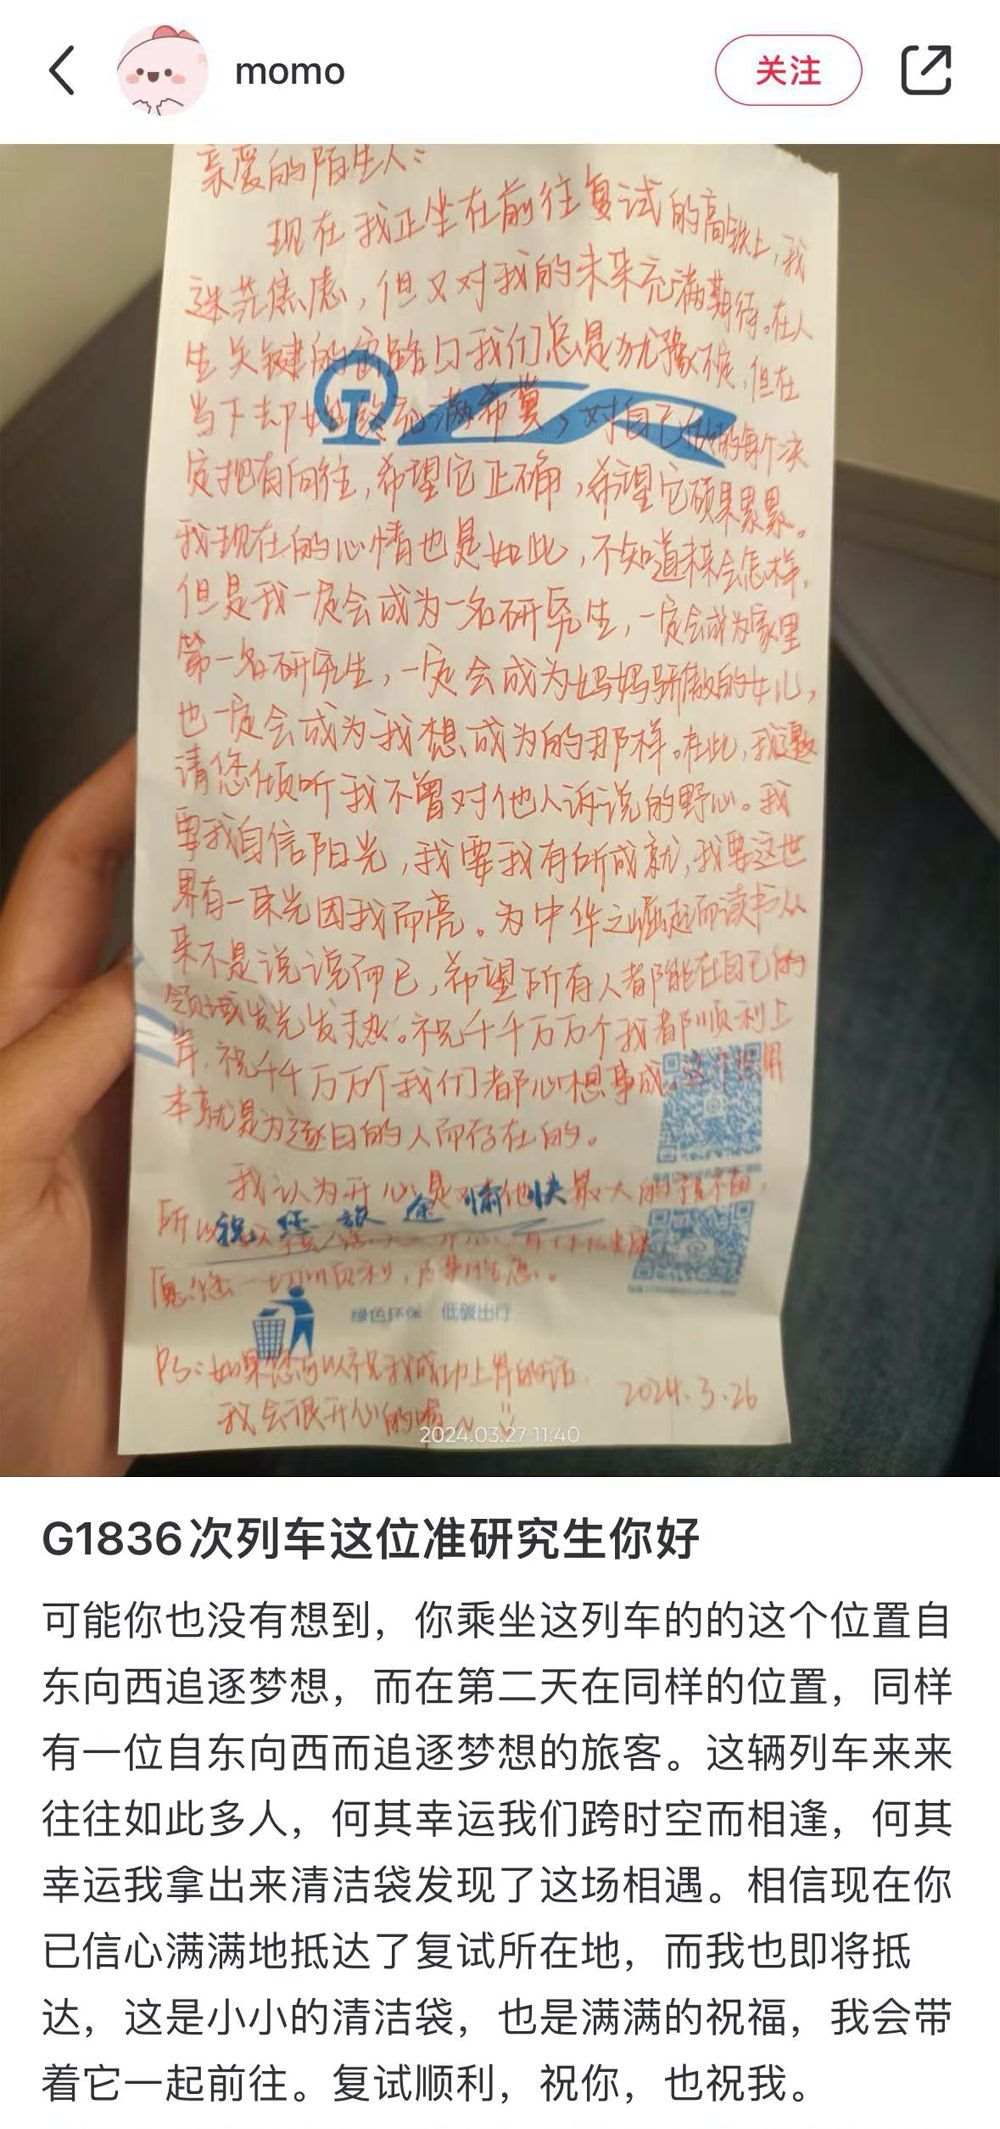 momo
关注
亲爱的陌生人：
现在我正坐在前往复试的高铁上，我
迷茫焦虑，但又对我的未来充满期待。在人
生关键的岔路口我们总是犹豫不决，但在
当下却始终充满希冀，对自己做的每个决
定抱有向往，希望它正确，希望它硕果累累。
我现在的心情也是如此，不知道未来会怎样，
但是我一定会成为一名研究生，一定会成为家里
第一名研究生，一定会成为妈妈骄傲的女儿，
也一定会成为我想成为的那样。在此，我邀
请您倾听我不曾对他人诉说的野心。我
要我自信阳光，我要我有所成就，我要这世
界有一束光因我而亮。为中华之崛起而读书从
来不是说说而已，希望所有人都能在自己的
领域发光发热。祝千千万万个我都顺利上
岸，祝千千万万个我们都心想事成。这个世界
本就是为逐日的人而存在的。
我认为开心是 最大的
所以
祝您旅途愉快
愿您一切顺利，
绿色环保 低碳出行
PS：如果您可以祝我成功上岸的话，
我会很开心的喔～
2024.3.26
2024.03.27 11:40
G1836次列车这位准研究生你好
可能你也没有想到，你乘坐这列车的的这个位置自
东向西追逐梦想，而在第二天在同样的位置，同样
有一位自东向西而追逐梦想的旅客。这辆列车来来
往往如此多人，何其幸运我们跨时空而相逢，何其
幸运我拿出来清洁袋发现了这场相遇。相信现在你
已信心满满地抵达了复试所在地，而我也即将抵
达，这是小小的清洁袋，也是满满的祝福，我会带
着它一起前往。复试顺利，祝你，也祝我。